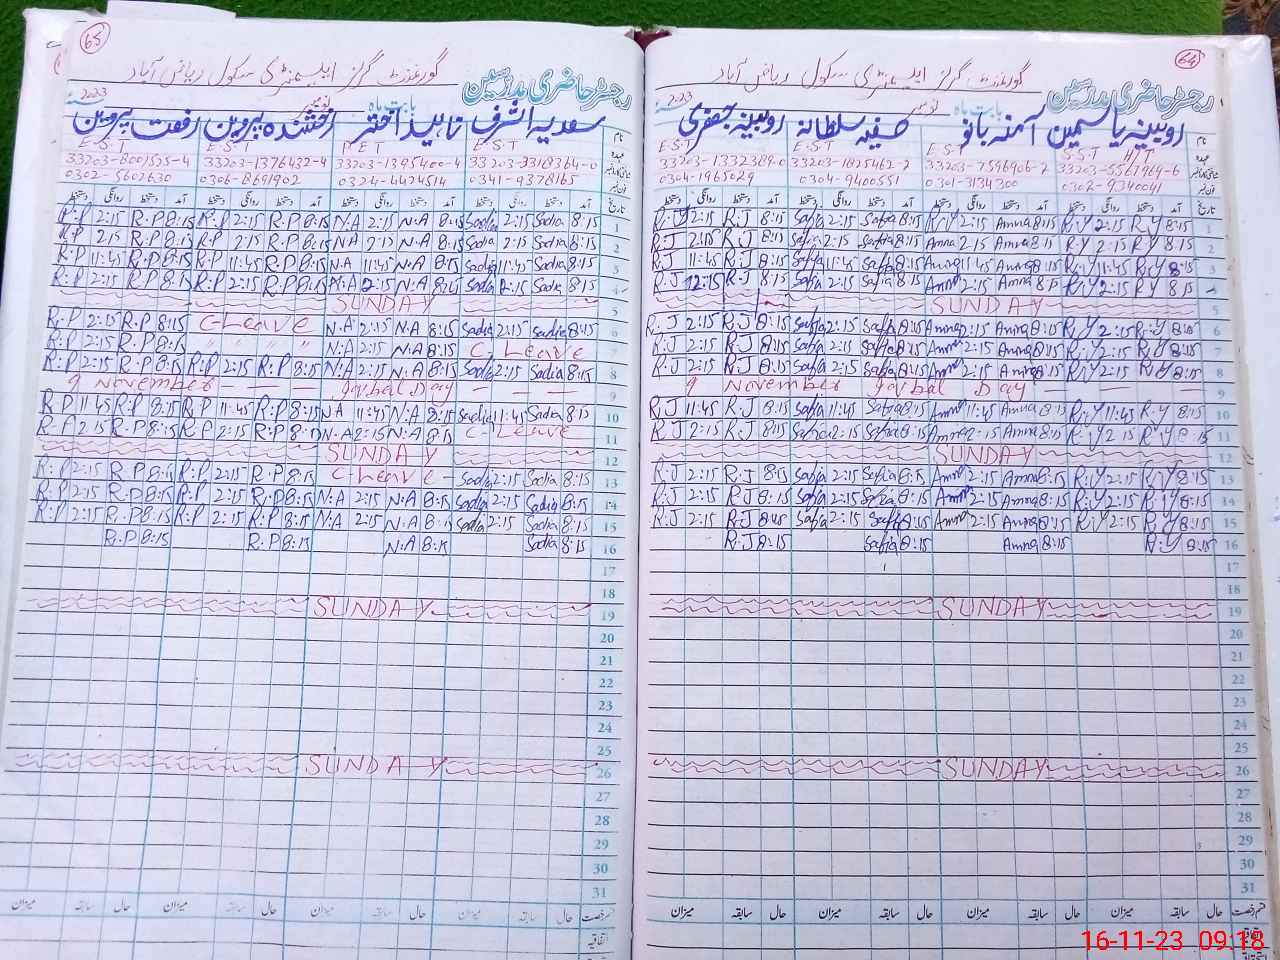 65
گورنمنٹ گرلز ایلیمنٹری سکول ریاض آباد
رجسٹر حاضری مدرسین
بابت ماہ نومبر 2023ء
سعدیہ اشرف ناہید اختر رخشندہ پروین رفعت پروین
E.S.T E.S.T
33203-8001535-4 33203-1376432-4 33203-1395400-4 33203-3318364-0
0302-5602630 0306-8691902 0324-4424514 0341-9378165
تاریخ آمد دستخط روانگی دستخط آمد دستخط روانگی دستخط آمد دستخط روانگی دستخط آمد دستخط روانگی دستخط
R.P 2:15 R.P 8:15 R.P 2:15 R.P 8:15 N.A 2:15 N.A 8:15 Sadia 2:15 Sadia 8:15 1
R.P 2:15 R.P 8:15 R.P 2:15 R.P 8:15 N.A 2:15 N.A 8:15 Sadia 2:15 Sadia 8:15 2
R.P 11:45 R.P 8:15 R.P 11:45 R.P 8:15 N.A 11:45 N.A 8:15 Sadia 11:45 Sadia 8:15 3
R.P 2:15 R.P 8:15 R.P 2:15 R.P 8:15 N.A 2:15 N.A Sadia 2:15 Sadia 8:15 4
SUNDAY 5
R.P 2:15 R.P 8:15 C-Leave N.A 2:15 N.A 8:15 Sadia 2:15 Sadia 8:15 6
R.P 2:15 R.P 8:15 " " " " N.A 2:15 N.A 8:15 C-Leave 7
R.P 2:15 R.P 8:15 R.P 2:15 R.P 8:15 N.A 2:15 N.A 8:15 Sadia 2:15 Sadia 8:15 8
9 November Iqbal Day 9
R.P 11:45 R.P 8:15 R.P 11:45 R.P 8:15 N.A 11:45 N.A 8:15 Sadia 11:45 Sadia 8:15 10
R.P 2:15 R.P 8:15 R.P 2:15 R.P 8:15 N.A 2:15 N.A 8:15 C-Leave 11
SUNDAY 12
R.P 2:15 R.P 8:15 R.P 2:15 R.P 8:15 C-Leave Sadia 2:15 Sadia 8:15 13
R.P 2:15 R.P 8:15 R.P 2:15 R.P 8:15 N.A 2:15 N.A 8:15 Sadia 2:15 Sadia 8:15 14
R.P 2:15 R.P 8:15 R.P 2:15 R.P 8:15 N.A 2:15 N.A 8:15 Sadia 2:15 Sadia 8:15 15
R.P 8:15 R.P 8:15 N.A 8:15 Sadia 8:15 16
17
18
SUNDAY 19
20
21
22
23
24
25
SUNDAY 26
27
28
29
30
31
حال سابقہ میزان حال سابقہ میزان حال سابقہ میزان حال سابقہ میزان
اتفاقیہ
64
گورنمنٹ گرلز ایلیمنٹری سکول ریاض آباد
رجسٹر حاضری مدرسین
بابت ماہ نومبر 2023ء
روبینہ یاسمین آمنہ بانو صفیہ سلطانہ روبینہ جعفری
نام
E.S.T E.S.T E.S.T S.S.T H/T
عہدہ
33203-1332389-0 33203-1825462-2 33203-7596906-2 33203-5561964-6
0304-1965029 0304-9400551 0301-3134300 0302-9240041
تاریخ آمد دستخط روانگی دستخط آمد دستخط روانگی دستخط آمد دستخط روانگی دستخط آمد دستخط روانگی دستخط
R.J 2:15 R.J 8:15 Safia 2:15 Safia 8:15 R.Y 2:15 Amna 8:15 R.Y 2:15 R.Y 8:15 1
R.J 2:15 R.J 8:15 Safia 2:15 Safia 8:15 Amna 2:15 Amna 8:15 R.Y 2:15 R.Y 8:15 2
R.J 11:45 R.J 8:15 Safia 11:45 Safia 8:15 Amna 11:45 Amna 8:15 R.Y 11:45 R.Y 8:15 3
R.J 12:15 R.J 8:15 Safia 2:15 Safia 8:15 Amna 2:15 Amna 8:15 R.Y 2:15 R.Y 8:15 4
SUNDAY 5
R.J 2:15 R.J 8:15 Safia 2:15 Safia 8:15 Amna 2:15 Amna 8:15 R.Y 2:15 R.Y 8:15 6
R.J 2:15 R.J 8:15 Safia 2:15 Safia 8:15 Amna 2:15 Amna 8:15 R.Y 2:15 R.Y 8:15 7
R.J 2:15 R.J 8:15 Safia 2:15 Safia 8:15 Amna 2:15 Amna 8:15 R.Y 2:15 R.Y 8:15 8
9 November Iqbal Day 9
R.J 11:45 R.J 8:15 Safia 11:45 Safia 8:15 Amna 11:45 Amna 8:15 R.Y 11:45 R.Y 8:15 10
R.J 2:15 R.J 8:15 Safia 2:15 Safia 8:15 Amna 2:15 Amna 8:15 R.Y 2:15 R.Y 8:15 11
SUNDAY 12
R.J 2:15 R.J 8:15 Safia 2:15 Safia 8:15 Amna 2:15 Amna 8:15 R.Y 2:15 R.Y 8:15 13
R.J 2:15 R.J 8:15 Safia 2:15 Safia 8:15 Amna 2:15 Amna 8:15 R.Y 2:15 R.Y 8:15 14
R.J 2:15 R.J 8:15 Safia 2:15 Safia 8:15 Amna 2:15 Amna 8:15 R.Y 2:15 R.Y 8:15 15
R.J 8:15 Safia 8:15 Amna 8:15 R.Y 8:15 16
17
18
SUNDAY 19
20
21
22
23
24
25
SUNDAY 26
27
28
29
30
31
قسم رخصت حال سابقہ میزان حال سابقہ میزان حال سابقہ میزان حال سابقہ میزان
اتفاقیہ
16-11-23 09:18